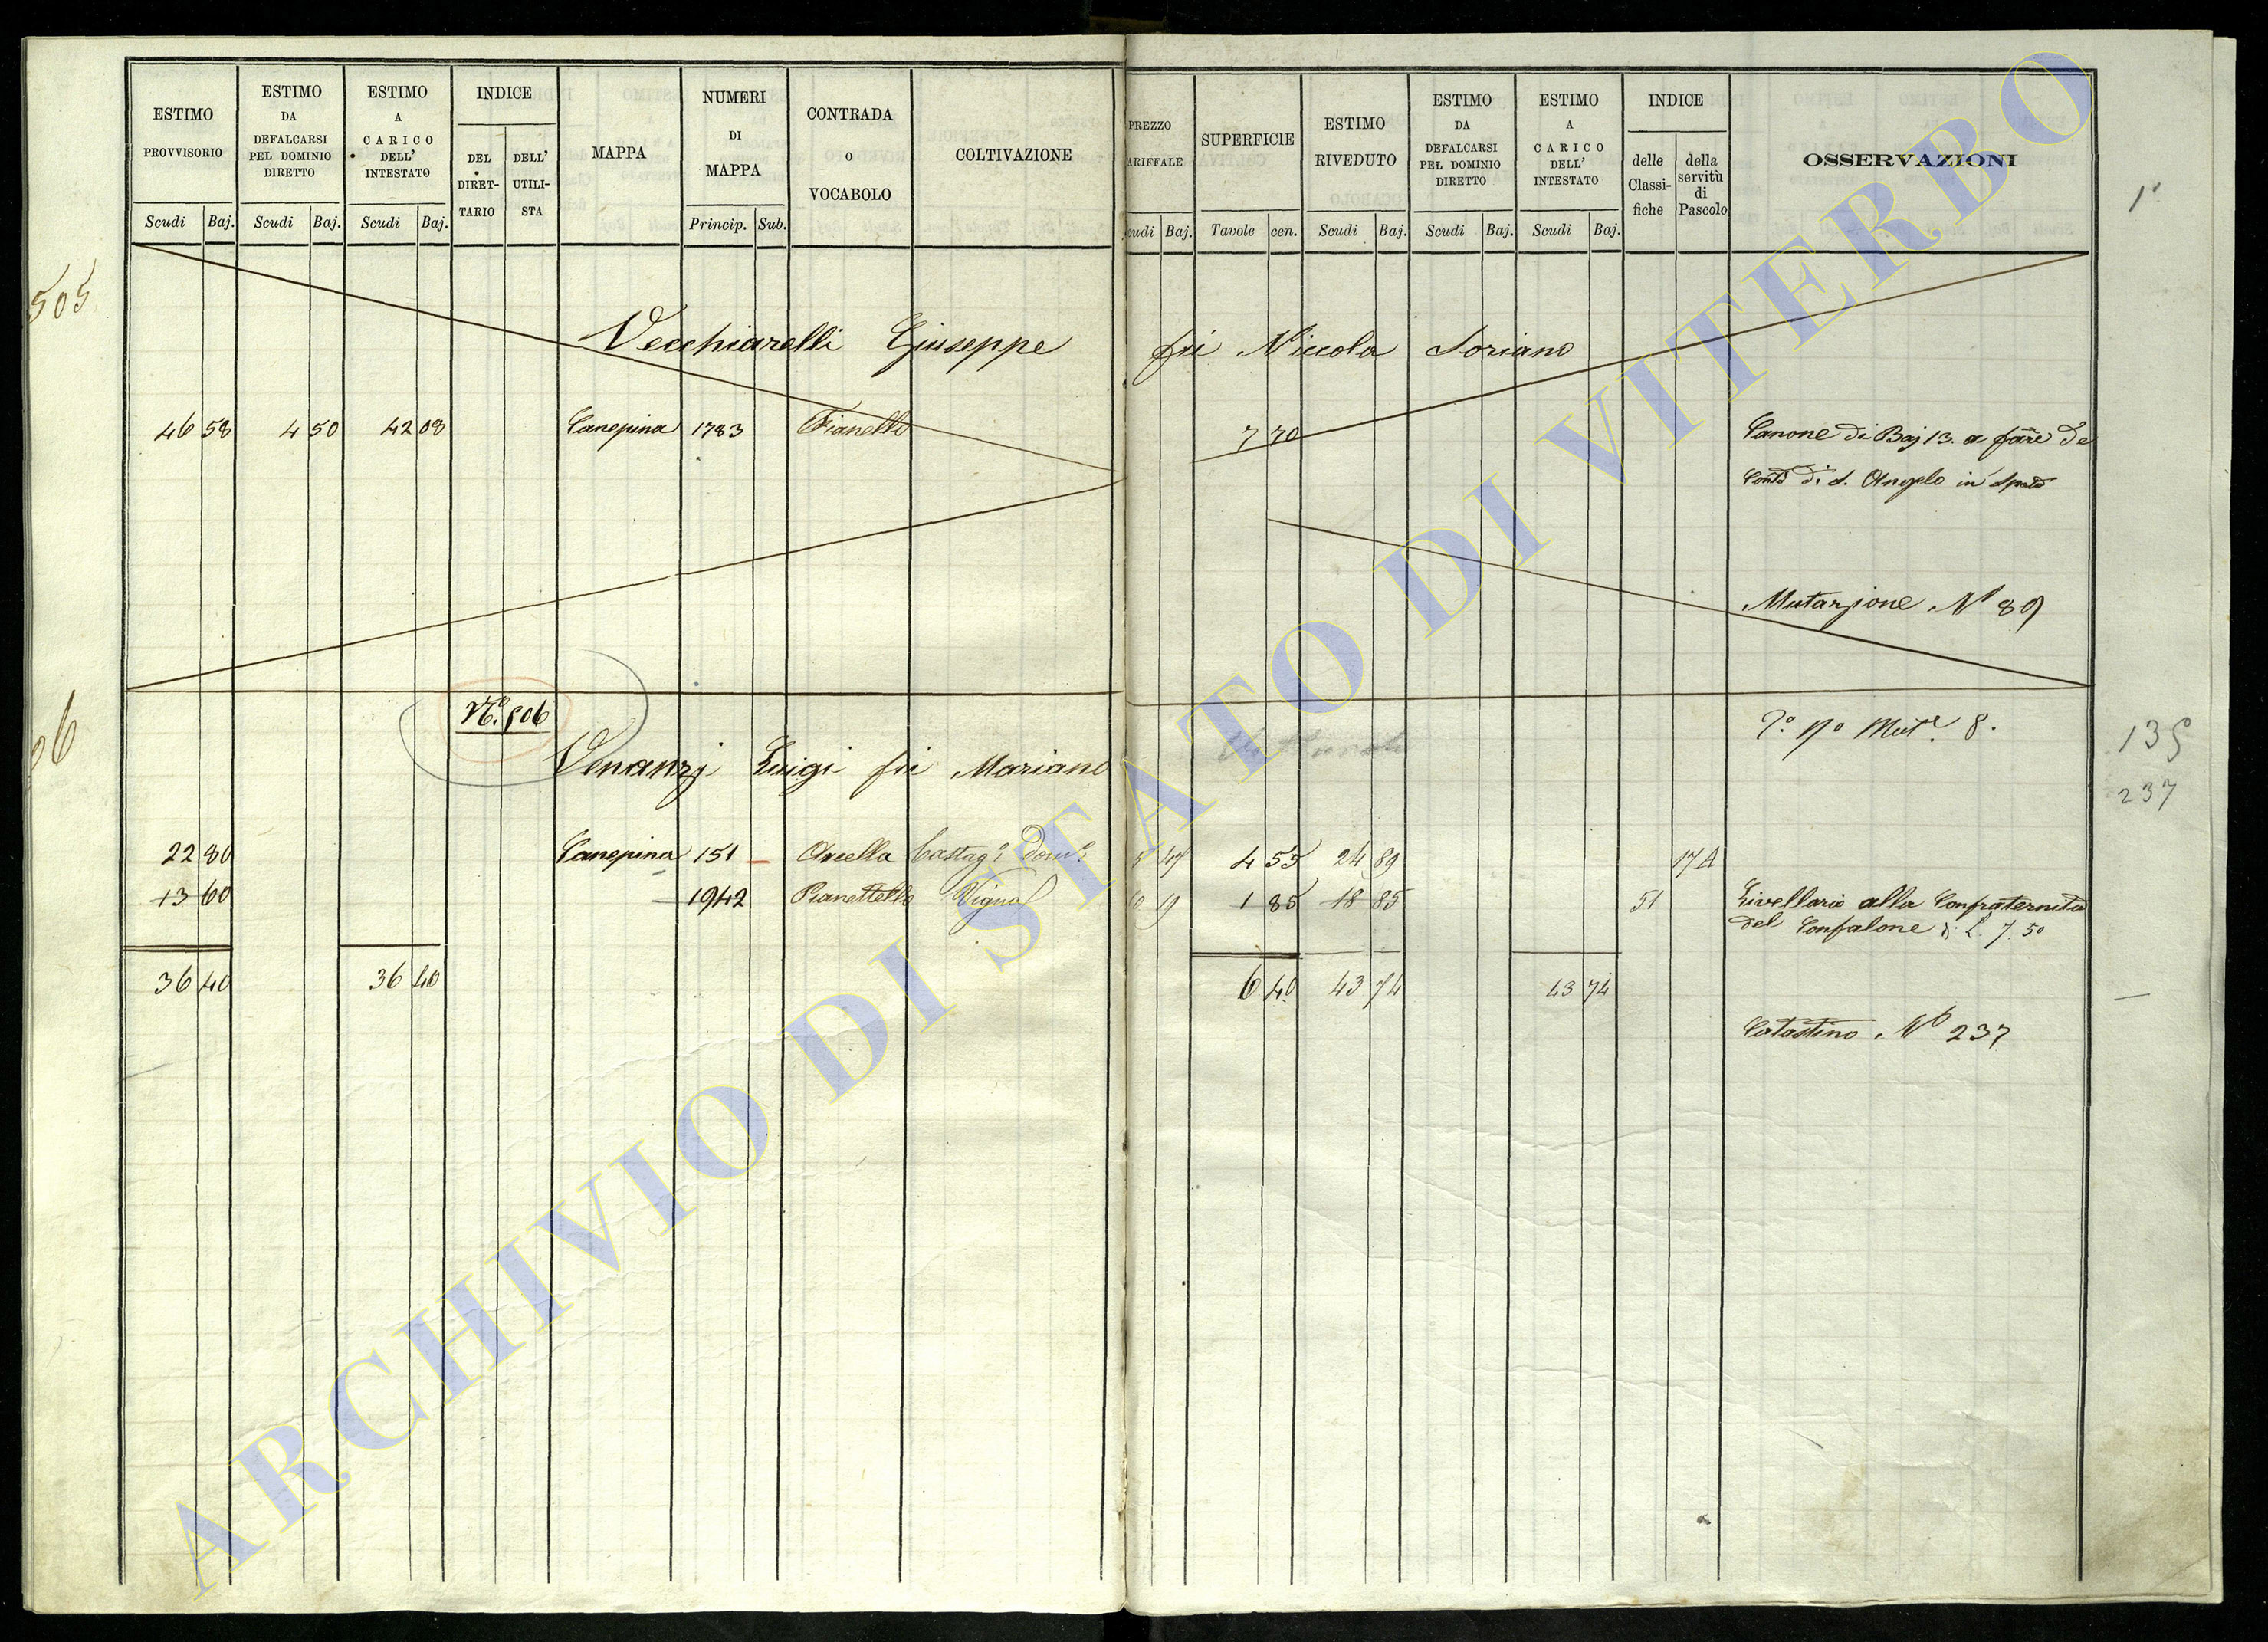 ESTIMO PROVVISORIO
Scudi Baj.
ESTIMO DA DEFALCARSI PEL DOMINIO DIRETTO
Scudi Baj.
ESTIMO A CARICO DELL' INTESTATO
Scudi Baj.
INDICE
DEL DIRET-TARIO
DELL' UTILI-STA
MAPPA
NUMERI DI MAPPA
Princip. Sub.
CONTRADA o VOCABOLO
COLTIVAZIONE
PREZZO
ARIFFALE
cudi Baj.
SUPERFICIE
Tavole cen.
ESTIMO RIVEDUTO
Scudi Baj.
ESTIMO DA DEFALCARSI PEL DOMINIO DIRETTO
Scudi Baj.
ESTIMO A CARICO DELL' INTESTATO
Scudi Baj.
INDICE
delle Classi-fiche
della servitù di Pascolo
OSSERVAZIONI
505
Vecchiarelli Giuseppe fu Niccola Soriano
46 58 4 50 42 08 Canepina 1783 7 70 Canone di Baj 13. a fare de
di S. Angelo in
Mutazione Nº 89
Nº. 506
Venanzj Luigi fu Mariano
Mutᵉ 8.
135
237
22 80 Canepina 151 Arcella Castagº domº 5 47 4 55 24 89 17A
13 60 1942 Pianettello Vigna 10 19 1 85 18 85 51 Livellario alla Confraternita
del Confalone di L. 7.50
36 40 36 40 6 40 43 74 43 74
Catastino Nº 237
ARCHIVIO DI STATO DI VITERBO